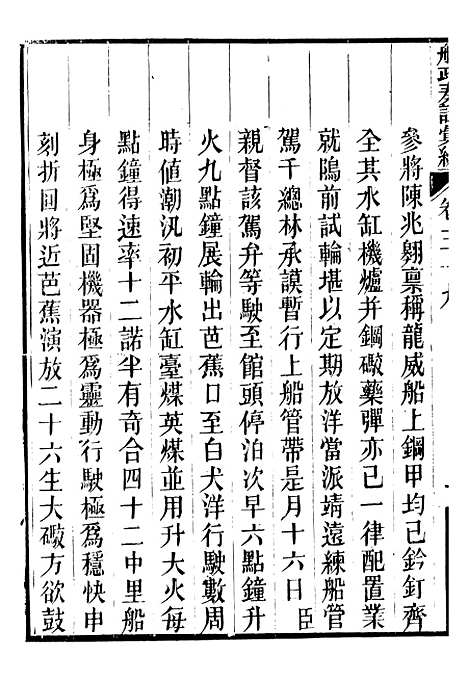 船政奏議彙編
卷三十九
參將陳兆翱稟稱龍威船上鋼甲均已鈐釘齊
全其水缸機爐并鋼礮藥彈亦已一律配置業
就隖前試輪堪以定期放洋當派靖遠練船管
駕千總林承謨暫行上船管帶是月十六日臣
親督該駕弁等駛至館頭停泊次早六點鐘升
火九點鐘展輪出芭蕉口至白犬洋行駛數周
時値潮汛初平水缸臺煤英煤並用升大火每
點鐘得速率十二諾半有奇合四十二中里船
身極爲堅固機器極爲靈動行駛極爲穩快申
刻折回將近芭蕉演放二十六生大礮方欲鼓